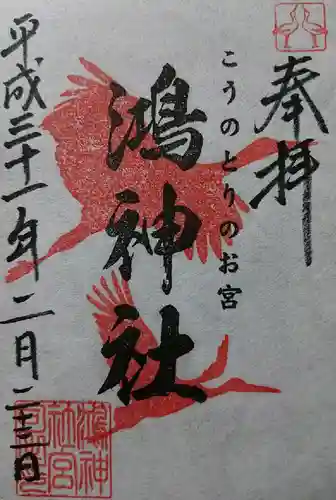 奉拝
こうのとりのお宮
鴻神社
平成三十一年二月二十三日
鴻神
社宮